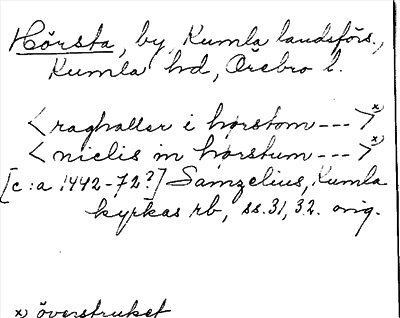 Hörsta, by, Kumla landsförs.,
Kumla hd, Örebro l.
<raghaller i hørstom --- >x)
<niclis in hørstum --- >x)
[c:a 1442-72?] Samzelius, Kumla
kyrkas rb, ss. 31, 32. orig.
x) överstruket